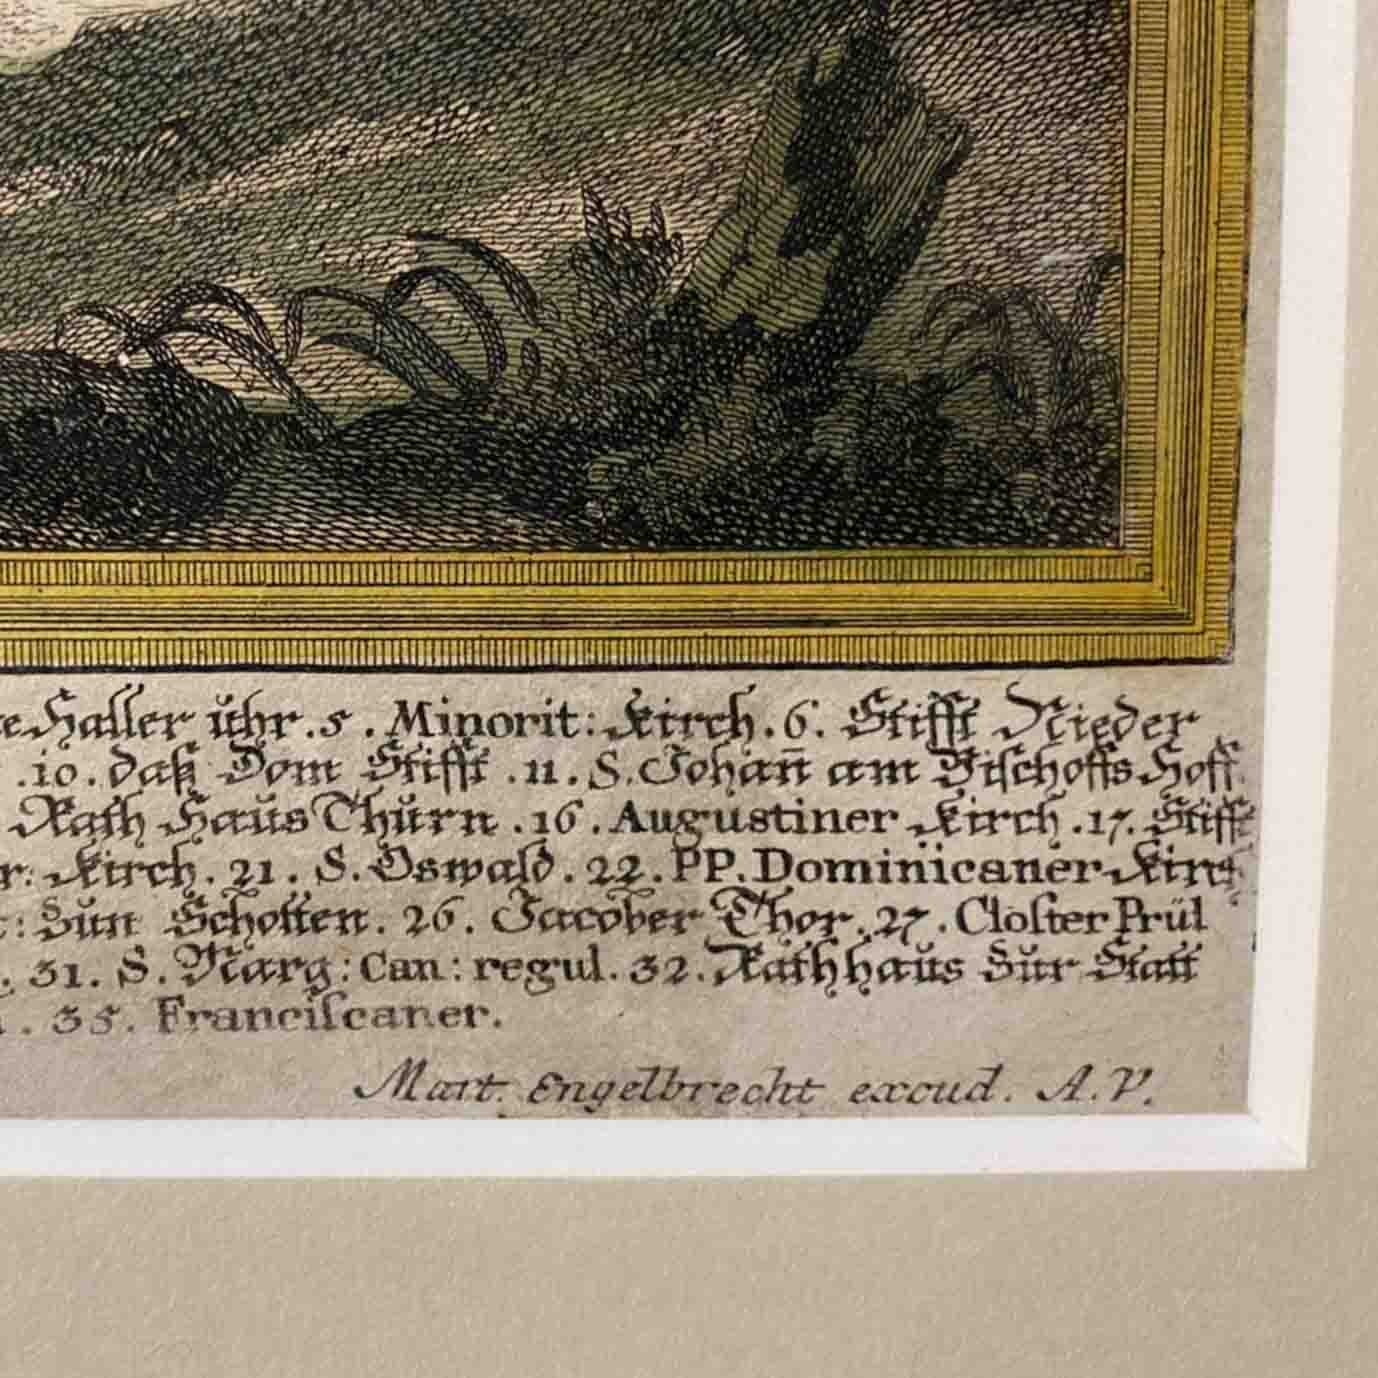 Haller ŭhr. 5. Minorit: Kirch. 6. Stifft Nieder
. 10. daß Dom Stifft. 11. S. Johan̄ am Bischoffs Hoff.
Rath Haŭs Thŭrn. 16. Augustiner Kirch. 17. Stifft
r: Kirch. 21. S. Oswald. 22. PP. Dominicaner Kirch
: Zŭn Schotten. 26. Jacober Thor. 27. Closter Prŭl
. 31. S. Marg: Can: regul. 32. Rathhaŭs Zŭr Statt
. 35. Franciscaner.
Mart. Engelbrecht excud. A.V.